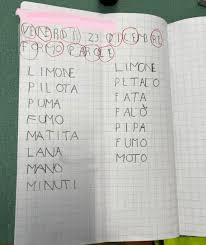 VENERDÌ, 23 DICEMBRE
FORMO PAROLE
LIMONE
PILOTA
PUMA
FUMO
MATITA
LANA
MANO
MINUTI
LIMONE
PETALO
FATA
FALÒ
PIPA
FUMO
MOTO